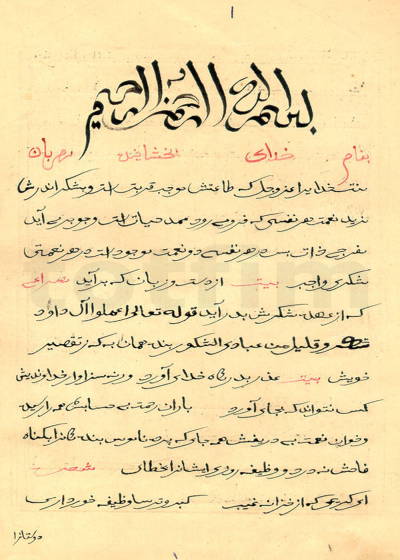 بسم الله الرحمن الرحیم
بنام خدای بخشاینده مهربان
منت خدایرا عزوجل که طاعتش موجب قربتست و بشکر اندرش
مزید نعمت هر نفسی که فرو می رود ممد حیات است و چون بر می آید
مفرح ذات پس در هر نفسی دو نعمت موجود است و بر هر نعمتی
شکری واجب بیت از دست و زبان که برآید
که از عهده شکرش بدر آید قوله تعالی اعملوا آل داود
شکرا و قلیل من عبادی الشکور بنده همان به که ز تقصیر
خویش بیت عذر بدرگاه خدای آورد ورنه سزاوار خداوندیش
کس نتواند که بجای آورد باران رحمت بی حسابش همه را رسیده
و خوان نعمت بی دریغش همه جا کشیده پرده ناموس بندگان بگناه
فاحش ندرد و وظیفه روزی ایشان بخطای شعر
ای کریمی که از خزانه غیب گبر و ترسا وظیفه خور داری
دوستانرا